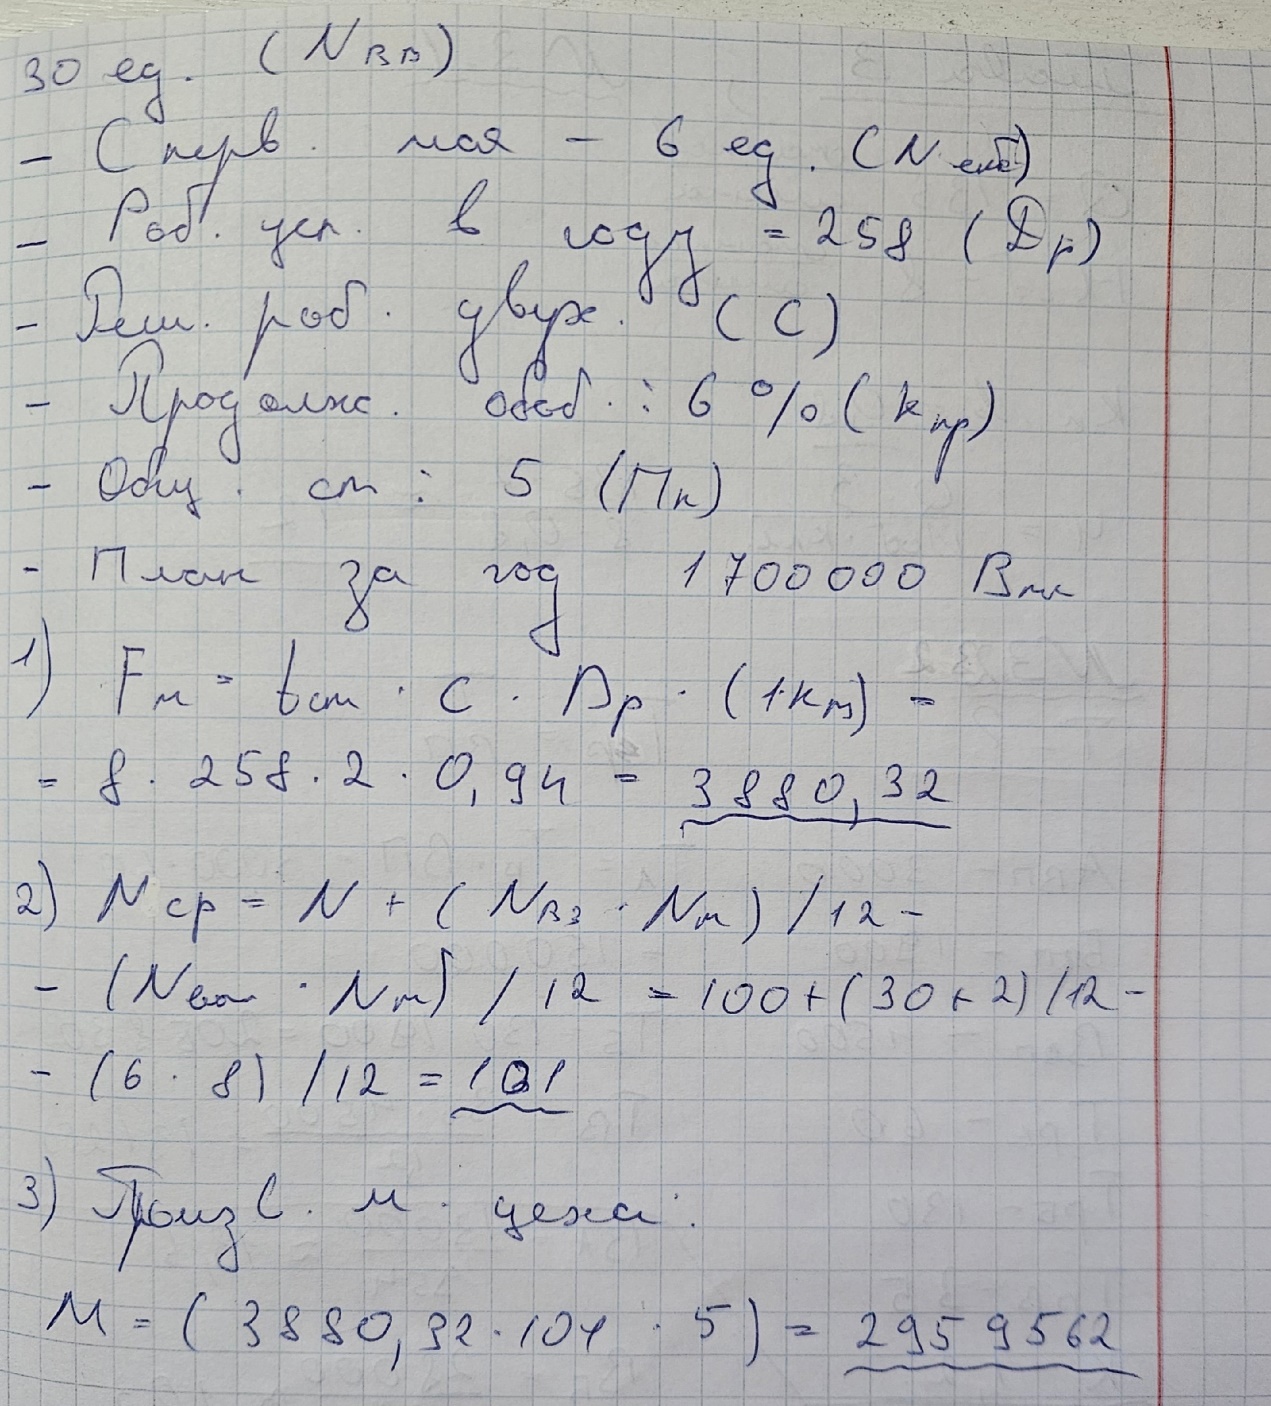 30 ед. (Nвв)
- С перв. мая - 6 ед. (N
- Роб. уст. в году = 258 (Dр)
- Реж. роб. двух. (С)
- Продолж. обоб. : 6 % (kпр)
- Общ. ст : 5 (Пк)
- План за год 1700000 Впл
1) Fм = tсм · С · Dр · (1·kпр) =
= 8 · 258 · 2 · 0,94 = 3880,32
2) Nср = N + (Nвз · Nм) /12 -
- (N · Nм) / 12 = 100+(30+2)/12 -
- (6 · 8) /12 = 101
3) Произв. м. цеха:
М = (3880,32·101 · 5) = 2959562